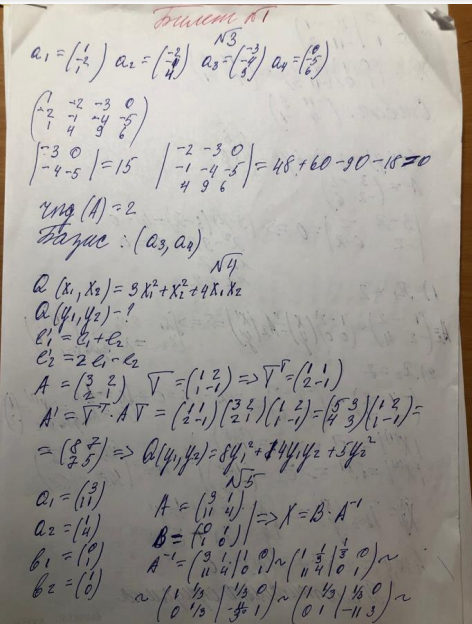 Билет №1
№3
a₁ = (1 -2 1) a₂ = (-2 -1 4) a₃ = (-3 -4 9) a₄ = (0 -5 6)
(1 -2 -3 0
-2 -1 -4 -5
1 4 9 6)
|-3 0
-4 -5| = 15 |-2 -3 0
-1 -4 -5
4 9 6| = 48 + 60 - 90 - 18 = 0
rng (A) = 2
Базис : (a₃, a₄)
№4
Q (x₁, x₂) = 3x₁² + x₂² + 4x₁x₂
Q (y₁, y₂) - ?
e₁' = e₁ + e₂
e₂' = 2e₁ - e₂
A = (3 2
2 1) T = (1 2
1 -1) => Tᵀ = (1 1
2 -1)
A' = Tᵀ · AT = (1 1
2 -1) (3 2
2 1) (1 2
1 -1) = (5 3
4 3) (1 2
1 -1) =
= (8 7
7 5) => Q(y₁, y₂) = 8y₁² + 14y₁y₂ + 5y₂²
№5
a₁ = (3 11)
a₂ = (1 4)
b₁ = (0 1)
b₂ = (1 0)
A = (3 1
11 4)
B = (0 1
1 0) | => X = B · A⁻¹
A⁻¹ = (3 1 | 1 0
11 4 | 0 1) ~ (1 1/3 | 1/3 0
11 4 | 0 1) ~
~ (1 1/3 | 1/3 0
0 1/3 | 1) ~ (1 1/3 | 1/3 0
0 1 | -11 3) ~